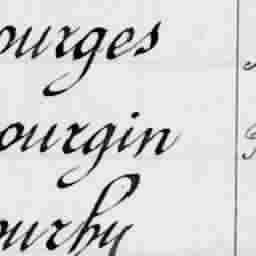 ourges
ourgin
ourby